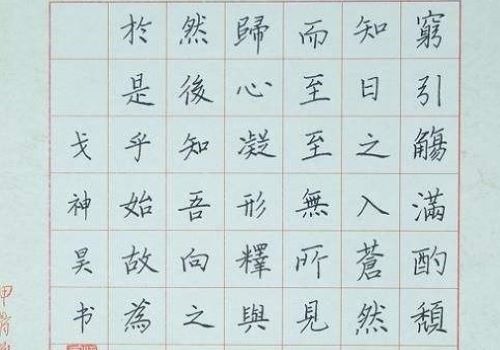 窮引觴滿酌頹
知日之入蒼然
而至至無所見
歸心凝形釋與
然後知吾向之
於是乎始故為
戈神昊书